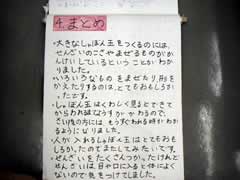 4.まとめ
・大きなしゃぼん玉をつくるのには、
せんざいのこさやまぜるものがか
んけいしているということがわか
りました。
・いろいろなものをまぜたり、形を
かえたりするのは、とてもおもしろか
ったです。
・しゃぼん玉はくわしく見るとできて
からわれるまでに色がかわるので、
さい後の方にはもうすぐわれる時がわか
るようになりました。
・人が入れるしゃぼん玉はとてもおも
しろかったのでまたしてみたいです。
・せんざいをたくさんつかったけれど
せんざいは、目や口に入ると体によく
ないので気をつけてしました。